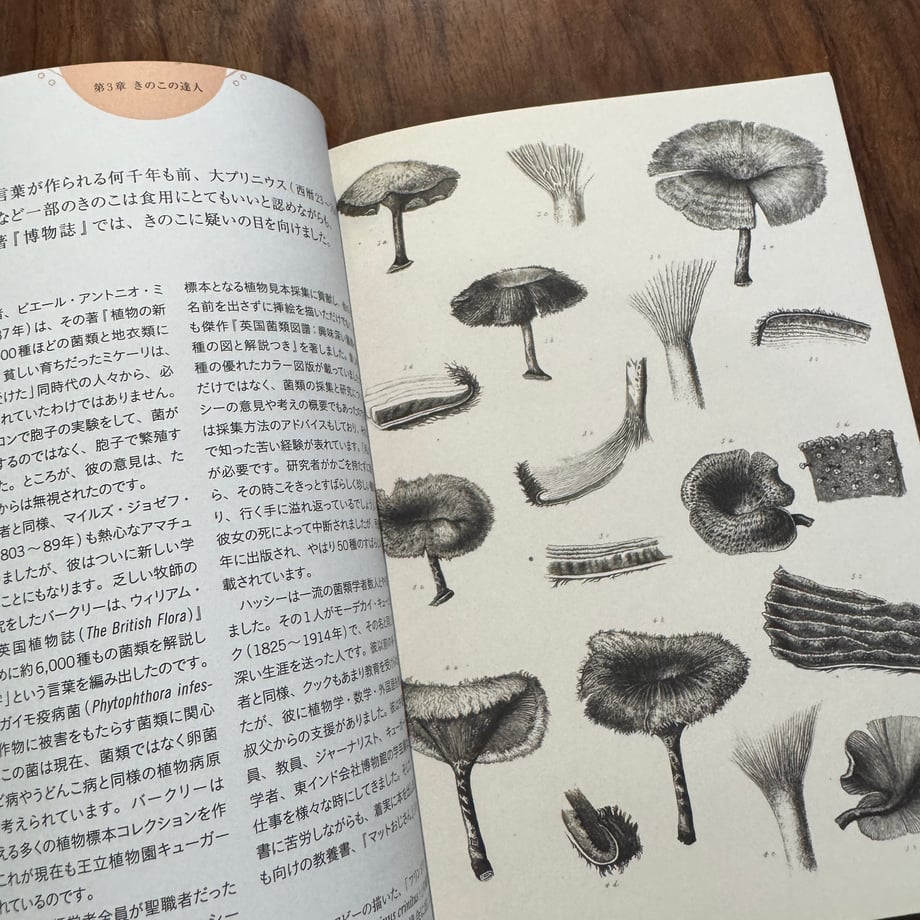 第3章 きのこの達人
言葉が作られる何千年も前、大プリニウス(西暦23〜
など一部のきのこは食用にとてもいいと認めながらも、
著『博物誌』では、きのこに疑いの目を向けました。
者、ピエール・アントニオ・ミ
37年)は、その著『植物の新
00種ほどの菌類と地衣類に
貧しい育ちだったミケーリは、
けた」同時代の人々から、必
れていたわけではありません。
ロンで胞子の実験をして、菌が
するのではなく、胞子で繁殖す
た。ところが、彼の意見は、た
からは無視されたのです。
者と同様、マイルズ・ジョゼフ・
1803〜89年)も熱心なアマチュ
ましたが、彼はついに新しい学
ことにもなります。乏しい牧師の
究をしたバークリーは、ウィリアム・
英国植物誌(The British Flora)』
めに約6,000種もの菌類を解説し
」という言葉を編み出したのです。
ガイモ疫病菌(Phytophthora infes-
作物に被害をもたらす菌類に関心
この菌は現在、菌類ではなく卵菌
ど病やうどんこ病と同様の植物病原
考えられています。バークリーは
える多くの植物標本コレクションを作
これが現在も王立植物園キューガー
れているのです。
学者全員が聖職者だった
標本となる植物見本採集に貢献し
名前を出さずに挿絵を描いただけで
も傑作『英国菌類図譜:興味深い
種の図と解説つき』を著しました。
種の優れたカラー図版が載っていまし
だけではなく、菌類の採集と研究に
シーの意見や考えの概要でもあった
は採集方法のアドバイスもしており、そ
で知った苦い経験が表れています。
が必要です。研究者がかごを持たずに
ら、その時こそきっとすばらしく珍しい
り、行く手に溢れ返っているでしょう
彼女の死によって中断されましたが、
年に出版され、やはり50種のすばらし
載されています。
ハッシーは一流の菌類学者数人と
ました。その1人がモーデカイ・キュー
ク(1825〜1914年)で、その名と同
深い生涯を送った人です。彼以前の
者と同様、クックもあまり教育を受け
たが、彼に植物学・数学・外国語
叔父からの支援がありました。彼は
員、教員、ジャーナリスト、キュー
学者、東インド会社博物館の学芸
仕事を様々な時にしてきました。そし
書に苦労しながらも、着実に本を出し
も向けの教養書、『マットおじさん
ビーの描いた、